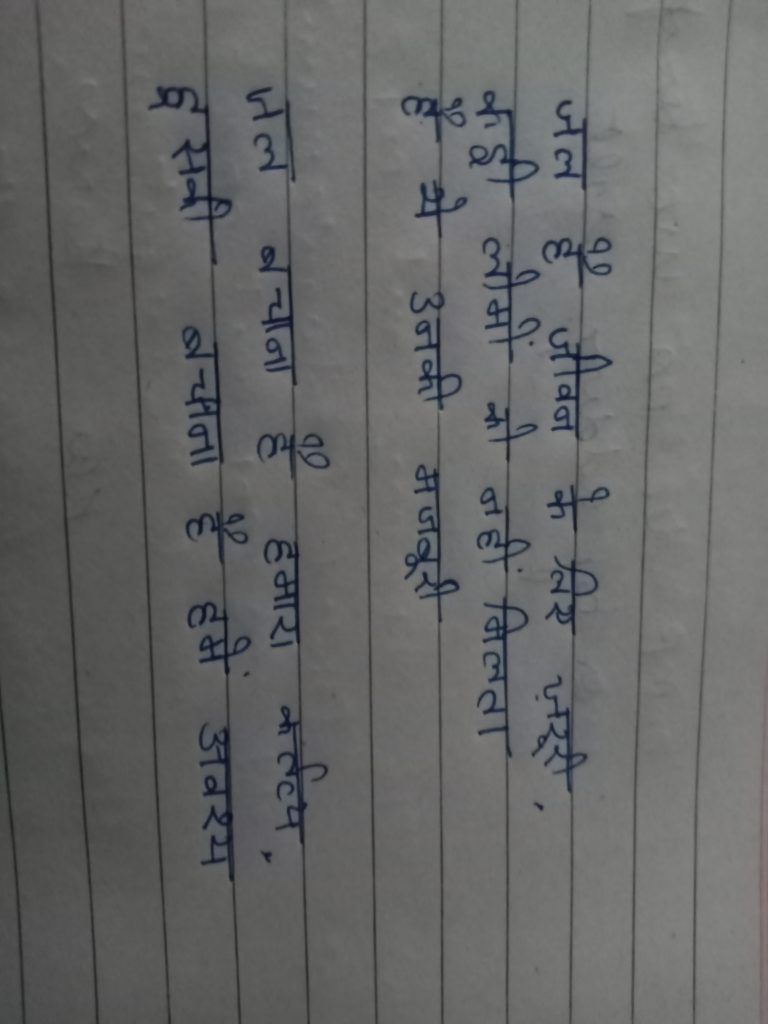 जल है जीवन के लिए ज़रूरी,
कई लोगों को नहीं मिलता
है ये उनकी मजबूरी
जल बचाना है हमारा कर्तव्य,
इसकी बचाना है हमें अवश्य